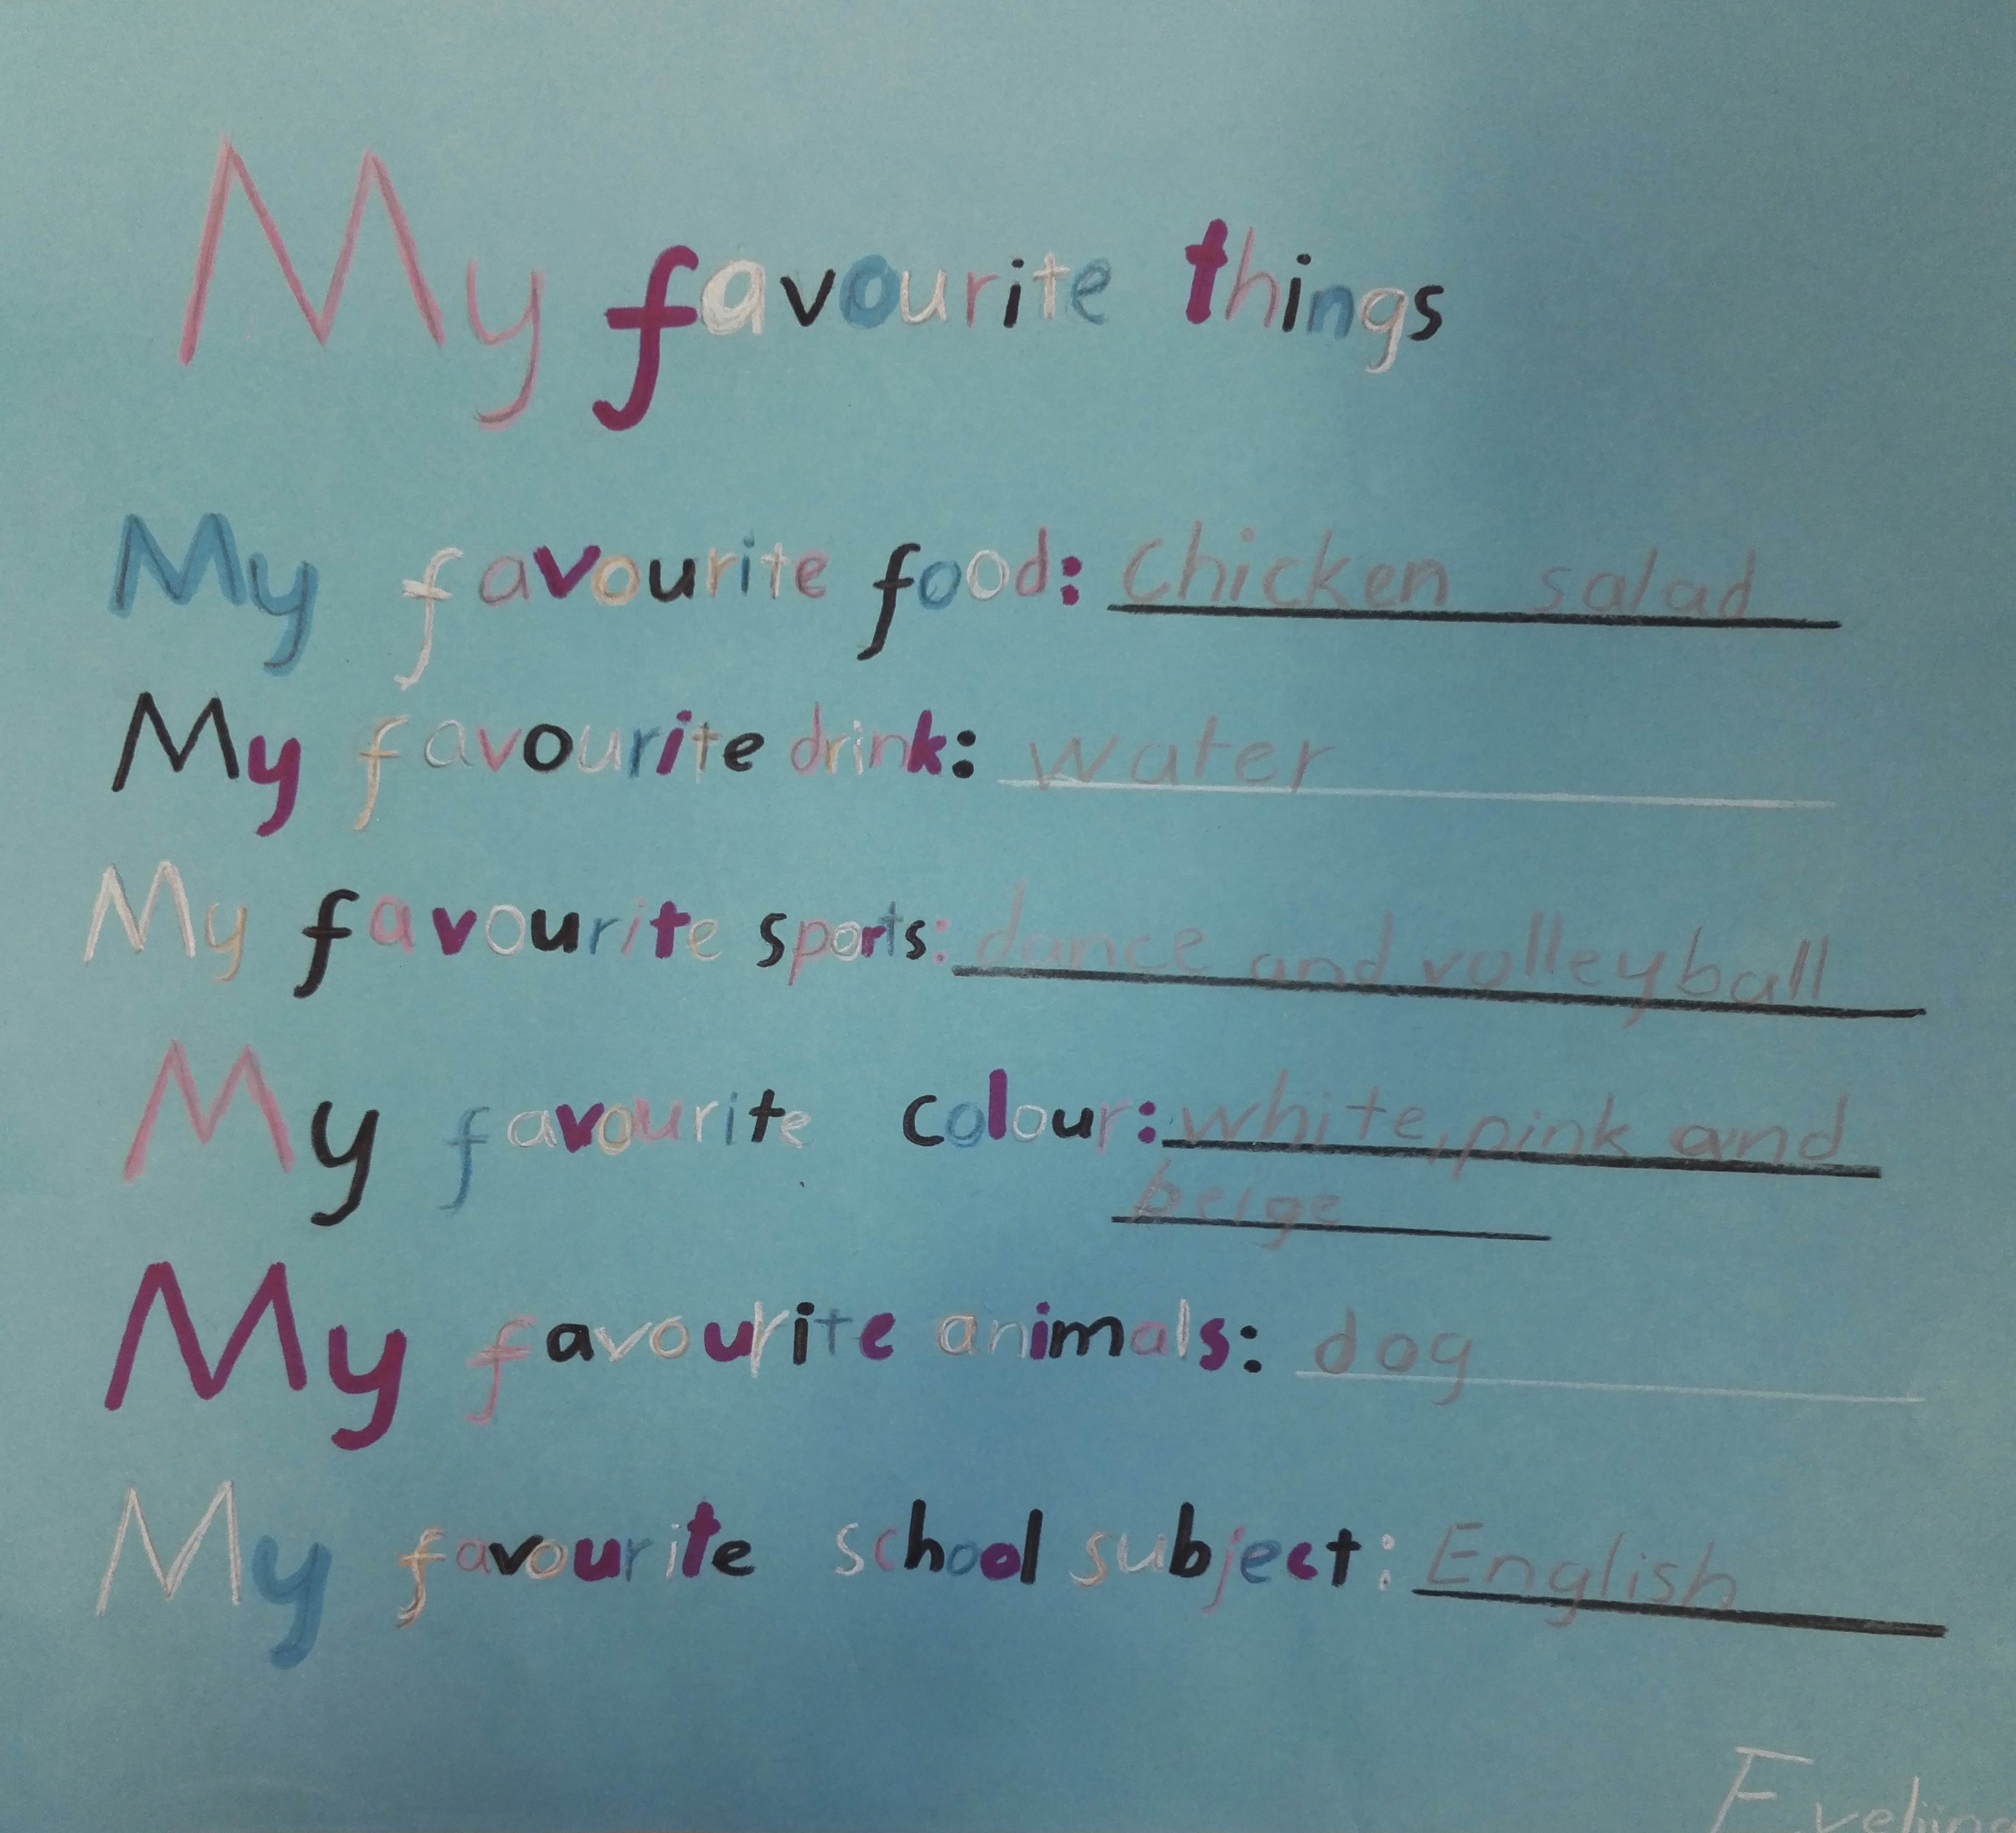 My favourite things
My favourite food: Chicken salad
My favourite drink: water
My favourite sports: dance and volleyball
My favourite colour: white, pink and
beige
My favourite animals: dog
My favourite school subject: English